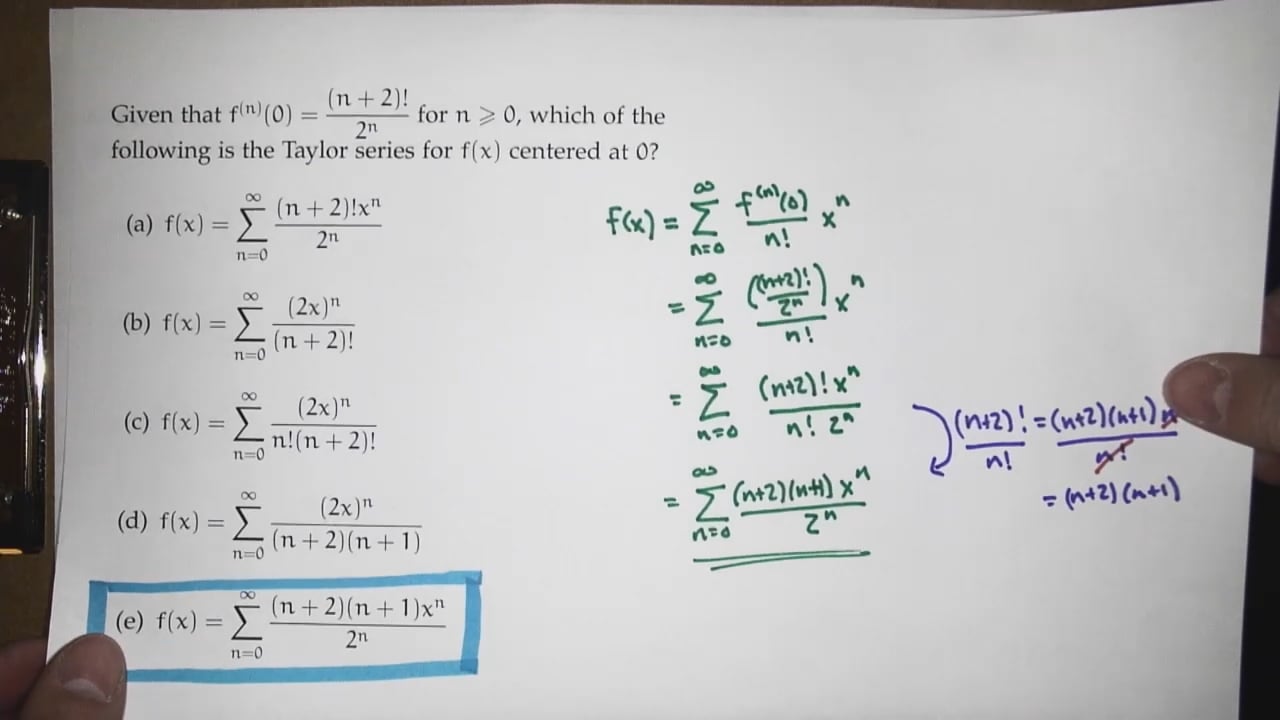 Given that f⁽ⁿ⁾(0) = (n + 2)! / 2ⁿ for n ⩾ 0, which of the
following is the Taylor series for f(x) centered at 0?
(a) f(x) = ∑_{n=0}^{∞} (n + 2)!xⁿ / 2ⁿ
(b) f(x) = ∑_{n=0}^{∞} (2x)ⁿ / (n + 2)!
(c) f(x) = ∑_{n=0}^{∞} (2x)ⁿ / n!(n + 2)!
(d) f(x) = ∑_{n=0}^{∞} (2x)ⁿ / (n + 2)(n + 1)
(e) f(x) = ∑_{n=0}^{∞} (n + 2)(n + 1)xⁿ / 2ⁿ
f(x) = ∑_{n=0}^{∞} f⁽ⁿ⁾(0) / n! xⁿ
= ∑_{n=0}^{∞} ((n+2)! / 2ⁿ) / n! xⁿ
= ∑_{n=0}^{∞} (n+2)! xⁿ / n! 2ⁿ
= ∑_{n=0}^{∞} (n+2)(n+1) xⁿ / 2ⁿ
(n+2)! / n! = (n+2)(n+1) / n!
= (n+2)(n+1)